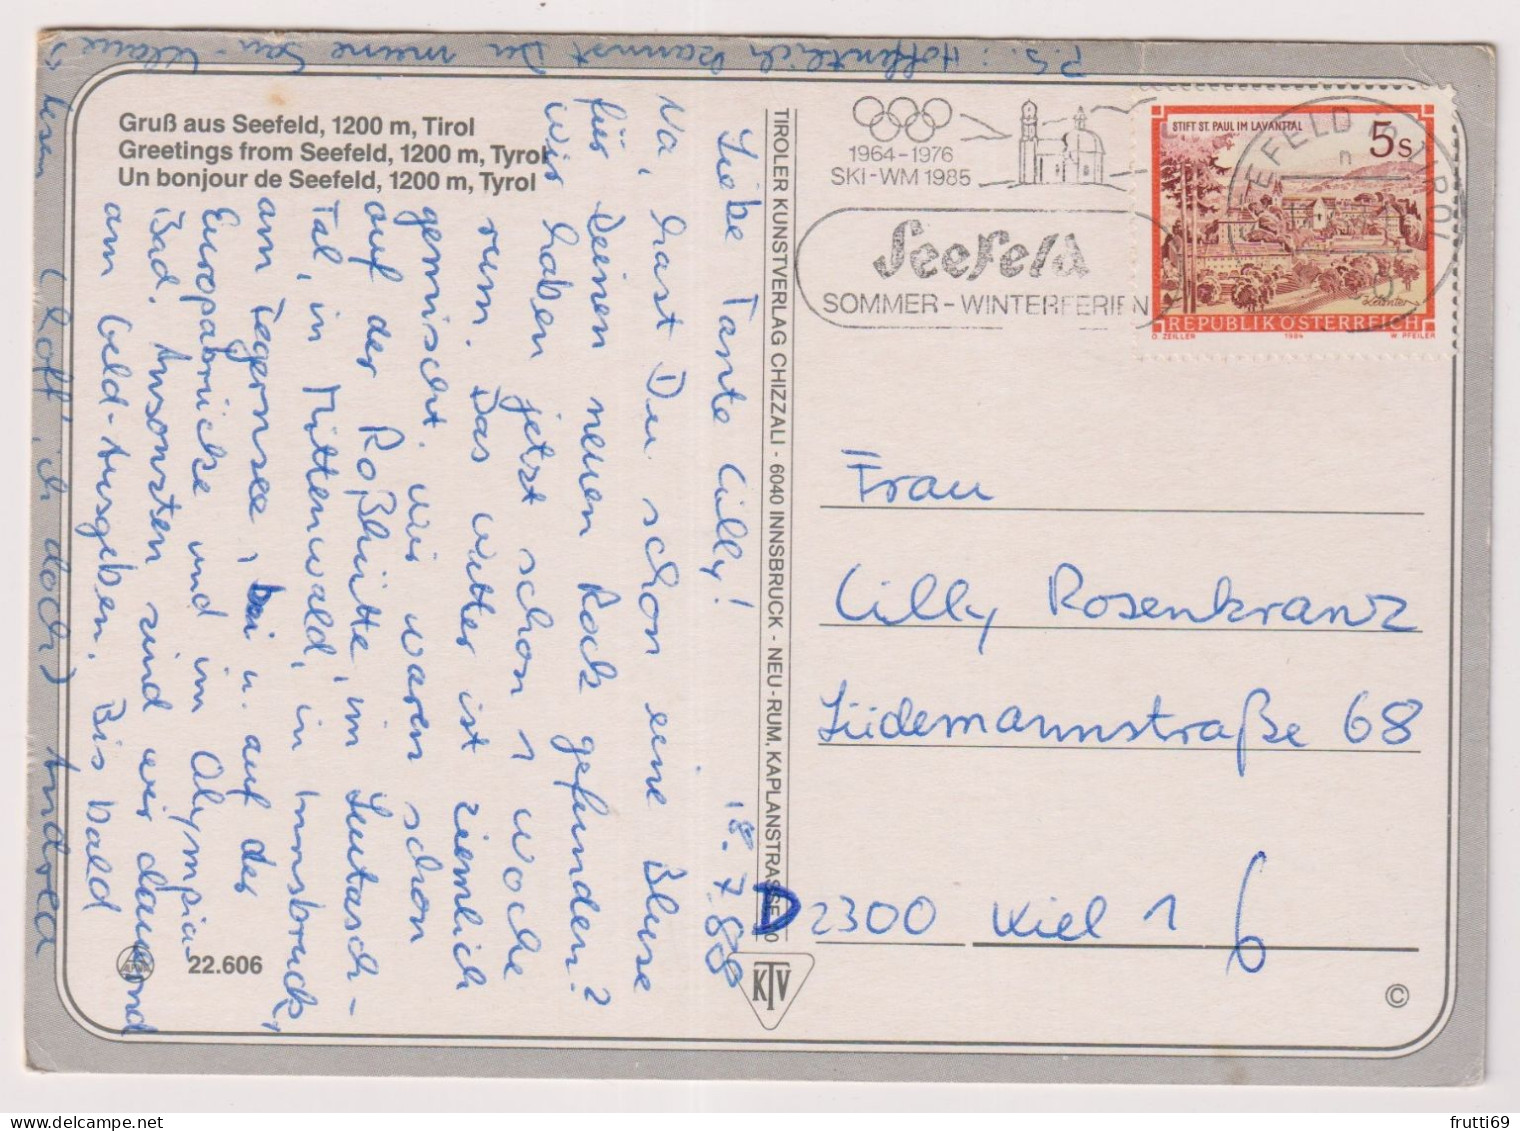 Gruß aus Seefeld, 1200 m, Tirol
Greetings from Seefeld, 1200 m, Tyrol
Un bonjour de Seefeld, 1200 m, Tyrol
18.7.88
Liebe Tante Cilly!
Na, hast Du schon eine Bluse
für Deinen neuen Rock gefunden?
Wir haben jetzt schon 1 Woche
rum. Das Wetter ist ziemlich
gemischt. Wir waren schon
auf der Roßhütte, im Leutasch-
Tal, in Mittenwald, in Innsbruck,
am Tegernsee, u. auf der
Europabrücke und im Olympia
Bad. Ansonsten sind wir dauernd
am Geld-Ausgeben. Bis bald
Andrea
P.S.: Hoffentlich kannst Du meine Sau-Klaue
lesen (hoff' ich doch)
22.606
TIROLER KUNSTVERLAG CHIZZALI - 6040 INNSBRUCK - NEU-RUM, KAPLANSTRASSE
KTV
1964-1976
SKI-WM 1985
Seefeld
SOMMER-WINTERFERIEN
SEEFELD IN TIROL
STIFT ST. PAUL IM LAVANTTAL
5s
REPUBLIK ÖSTERREICH
O. ZEILLER 1984 W. PFEILER
Frau
Cilly Rosenkranz
Lüdemannstraße 68
D 2300 Kiel 1
6
©
frutti69